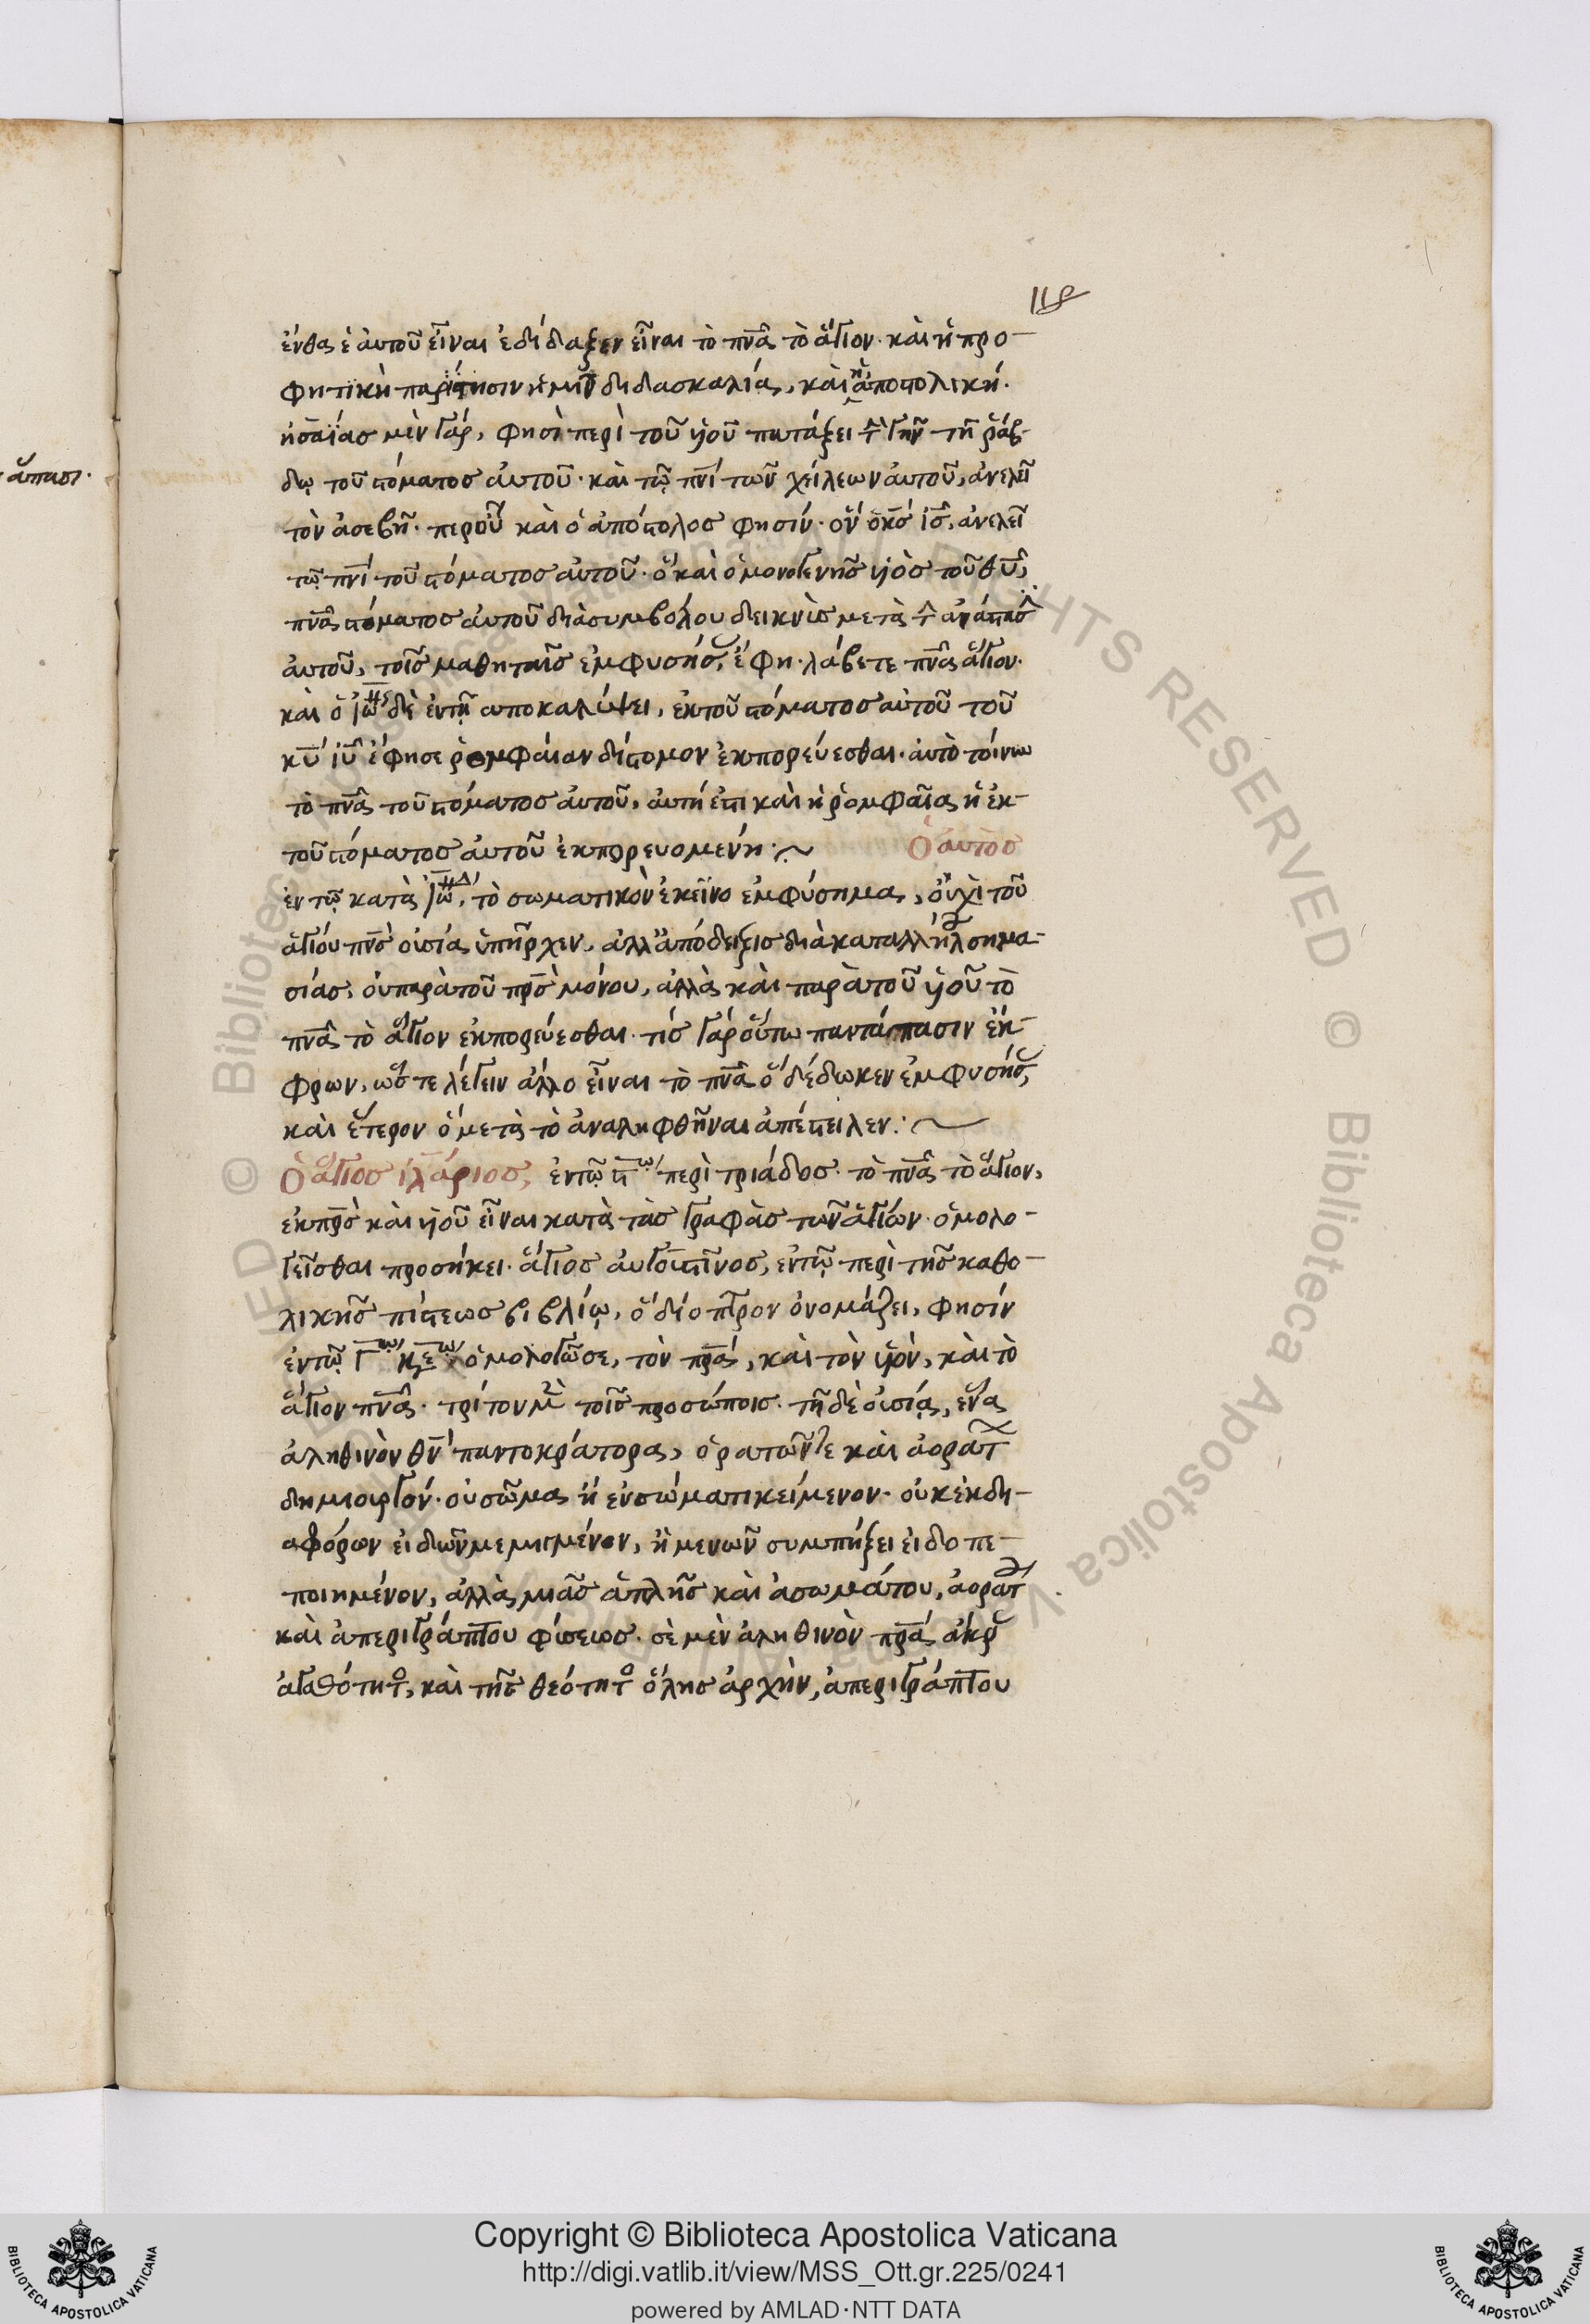 118
ἔνθα ἐ αὐτοῦ εἶναι ἐδίδαξεν εἶναι τὸ πνᾶ τὸ ἅγιον· καὶ ἡ προ-
φητικὴ παρίστησιν ἡμῖν διδασκαλία, καὶ ἡ ἀποστολική.
ἡσαΐας μὲν γάρ, φησὶ περὶ τοῦ υἱοῦ πατάξει τ̂ γῆν τῇ ράβ-
δω τοῦ στόματος αὐτοῦ· καὶ τῷ πνῑ τῶν χείλεων αὐτοῦ, ἀνελεῖ
ἅπασι.
τὸν ἀσεβῆ· περ οὗ καὶ ὁ ἀπόστολος φησίν· ὃν ὁ κς̄ ις̄, ἀνελεῖ
τῷ πνῑ τοῦ στόματος αὐτοῦ· ὃ καὶ ὁ μονογενὴς υἱὸς τοῦ θῡ,
πνᾶ στόματος αὐτοῦ διὰ συμβόλου δεικνὺς μετὰ τ̂ ἀνάστασ̂
αὐτοῦ, τοῖς μαθηταῖς ἐμφυσήσ, ἔφη· λάβετε πνᾶ ἅγιον·
καὶ ὁ ἰω δὲ ἐν τῇ αποκαλύψει, ἐκ τοῦ στόματος αὐτοῦ τοῦ
κῡ ιῡ ἔφησε ῥομφαίαν δίστομον ἐκπορεύεσθαι· αὐτὸ τοίνυν
τὸ πνᾶ τοῦ στόματος αὐτοῦ, αὐτή ἐστι καὶ ἡ ῥομφαῖα ἡ ἐκ-
τοῦ στόματος αὐτοῦ ἐκπορευομένη· ~ Ὁ αὐτὸς
ἐν τῷ κατὰ ἰω, τὸ σωματικὸν ἐκεῖνο ἐμφύσημα, οὐχὶ τοῦ
ἁγίου πνς̄ οὐσία ὑπῆρχεν, ἀλλ' ἀπόδειξις διὰ καταλλήλ σημα-
σίας, οὐ παρὰ τοῦ πρς̄ μόνου, ἀλλὰ καὶ παρὰ τοῦ υἱοῦ τὸ
πνᾶ τὸ ἅγιον ἐκπορεύεσθαι· τίς γάρ οὕτω παντάπασιν ἔκ-
φρων, ὥστε λέγειν ἄλλο εἶναι τὸ πνᾶ ὃ δέδωκεν ἐμφυσήσ,
καὶ ἕτερον ὃ μετὰ τὸ ἀναληφθῆναι ἀπέστειλεν: ~
Ὁ ἅγιος ἱλάριος, ἐν τῷ ςω περὶ τριάδος· τὸ πνᾶ τὸ ἅγιον,
ἐκ πρς̄ καὶ υἱοῦ εἶναι κατὰ τὰς γραφὰς τῶν ἁγίων· ὁμολο-
γεῖσθαι προσήκει· ἅγιος αὐγουστῖνος, ἐν τῷ περὶ τῆς καθο-
λικῆς πίστεως βιβλίῳ, ὃ δίοπτρον ὀνομάζει, φησίν
ἐν τῷ Γω κξεω ὁμολογῶ σε, τὸν πρᾱ, καὶ τὸν υἱὸν, καὶ τὸ
ἅγιον πνᾶ· τρίτον μ̀ τοῖς προσώποις· τῇ δὲ οὐσίᾳ, ἕνα
ἀληθινὸν θν̄ παντοκράτορα, ὁρατῶν τε καὶ ἀοράτ
δημιουργόν· οὐ σῶμα ἢ ἐν σώματι κείμενον· οὐκ ἐκ δι-
αφόρων εἰδῶν μεμιγμένον, ἢ μενων συμπήξει εἰδοπε-
ποιημένον, ἀλλὰ μιᾶς ἁπλῆς καὶ ἀσωμάτου, ἀοράτ
καὶ ἀπεριγράπτου φύσεως· σὲ μὲν ἀληθινὸν πρᾱ ἄκρ
ἀγαθότητ, καὶ τῆς θεότητ ὅλης ἀρχὴν, ἀπεριγράπτου
Copyright © Biblioteca Apostolica Vaticana
http://digi.vatlib.it/view/MSS_Ott.gr.225/0241
powered by AMLAD·NTT DATA